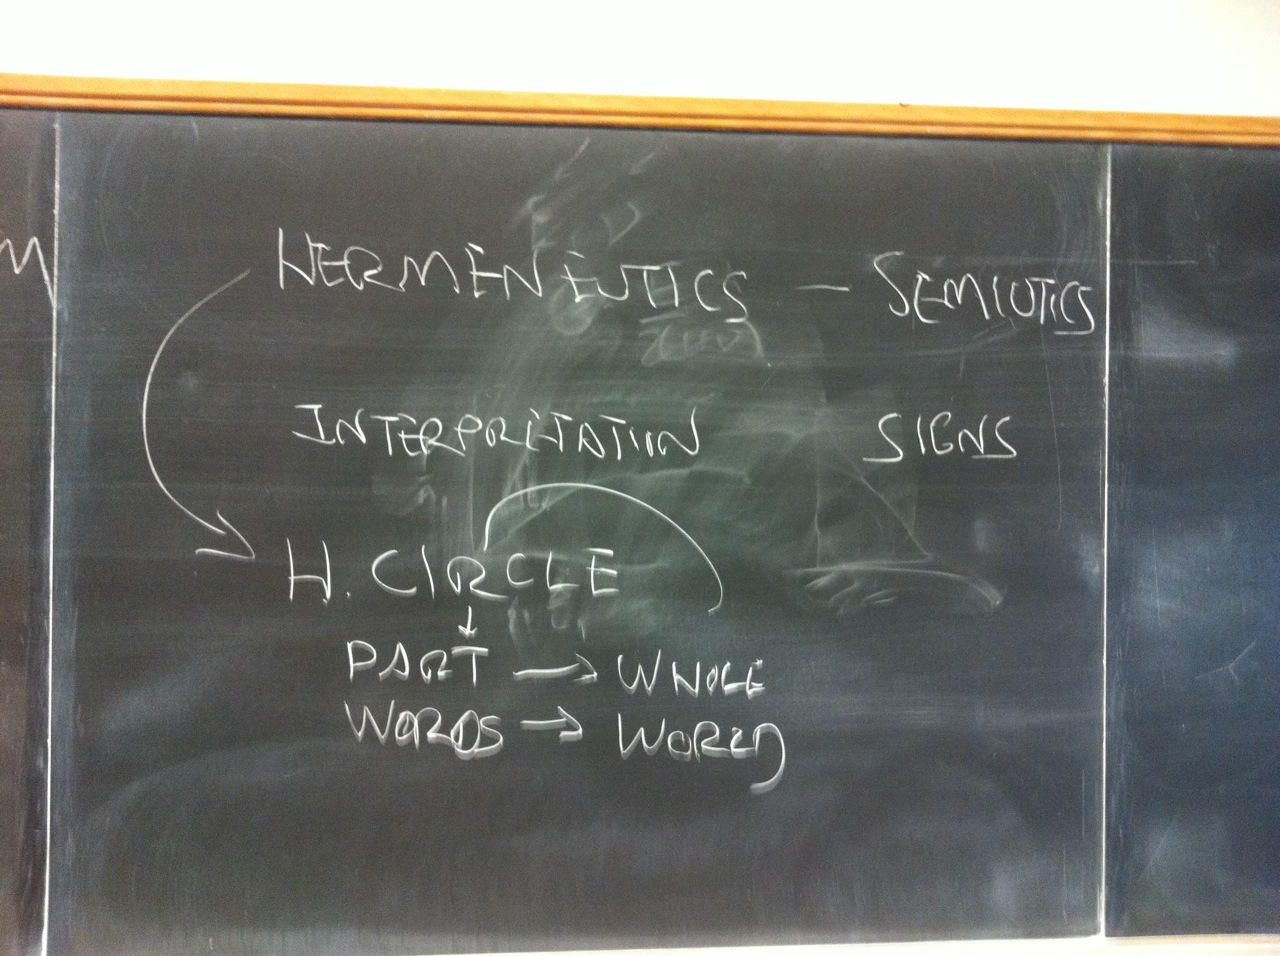 HERMENEUTICS — SEMIOTICS
INTERPRETATION SIGNS
H. CIRCLE
↓
PART → WHOLE
WORDS → WORLD